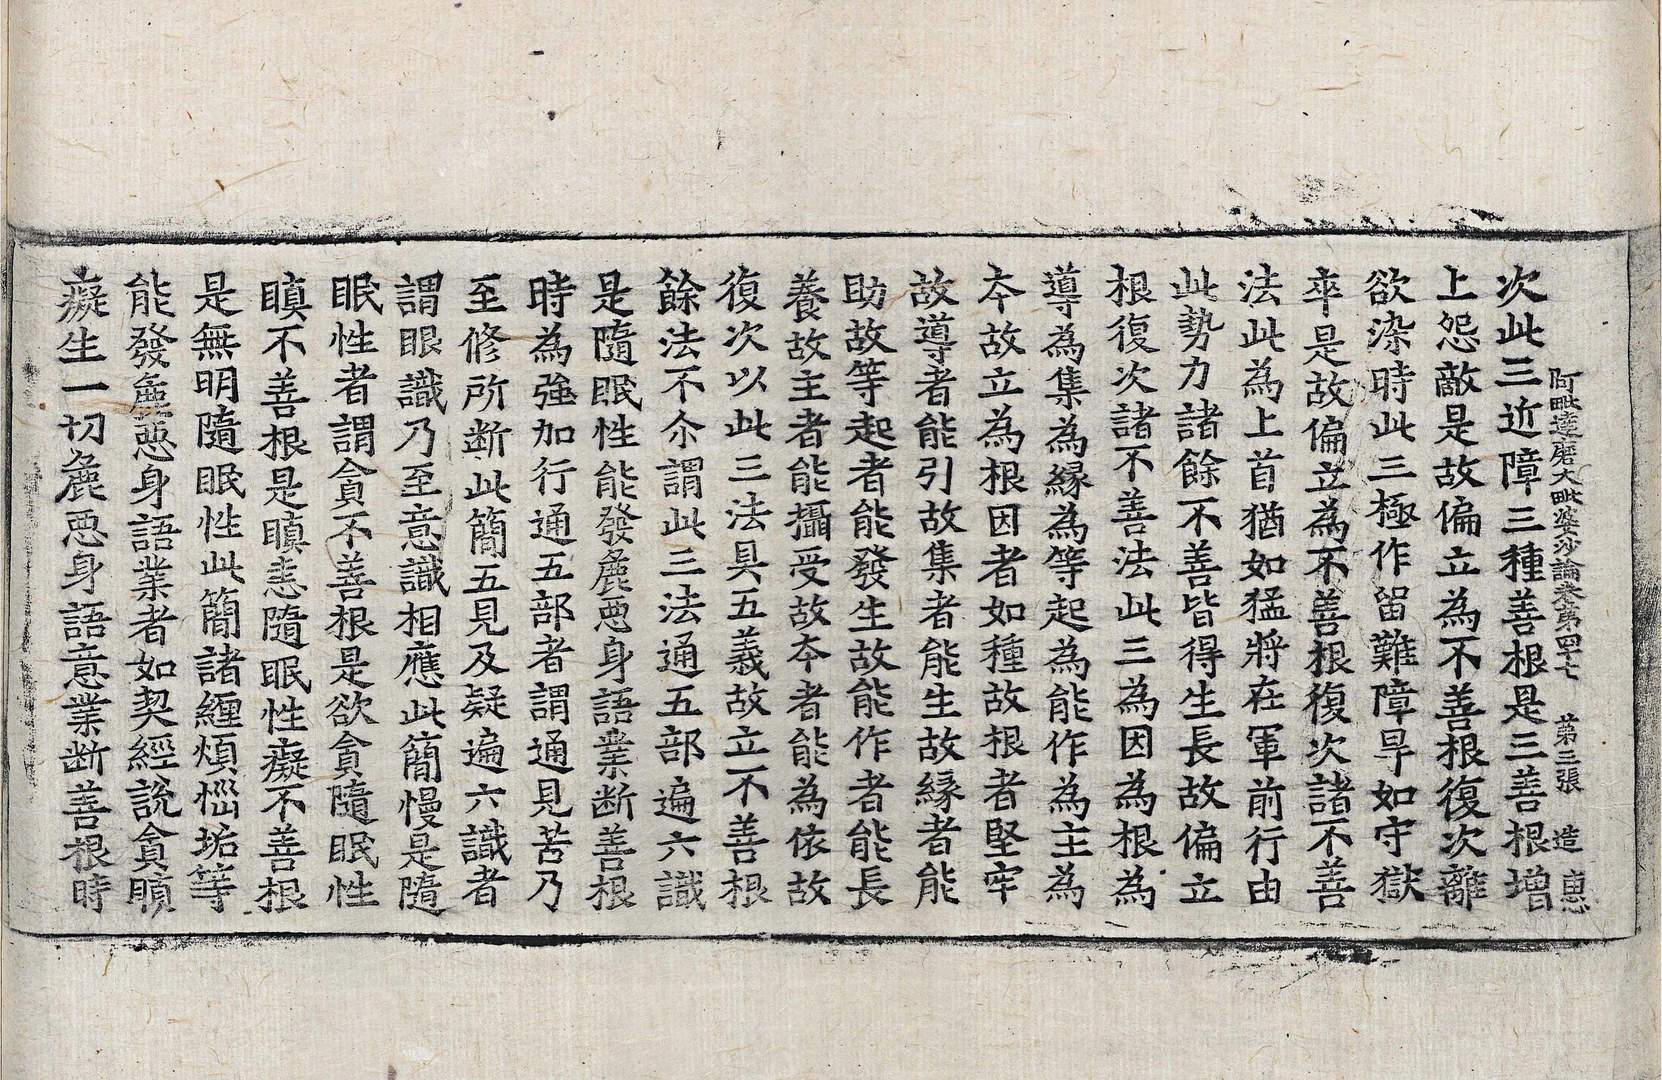 阿毗達磨大毗婆沙論卷第四十七 第三張 造
次此三近障三種善根是三善根增
上怨敵是故偏立為不善根復次離
欲染時此三極作留難障㝵如守獄
卒是故偏立為不善根復次諸不善
法此為上首猶如猛將在軍前行由
此勢力諸餘不善皆得生長故偏立
根復次諸不善法此三為因為根為
導為集為緣為等起為能作為主為
夲故立為根因者如種故根者堅牢
故導者能引故集者能生故緣者能
助故等起者能發生故能作者能長
養故主者能攝受故夲者能為依故
復次以此三法具五義故立不善根
餘法不尒謂此三法通五部遍六識
是隨眠性能發麁惡身語業斷善根
時為強加行通五部者謂通見苦乃
至修所斷此簡五見及疑遍六識者
謂眼識乃至意識相應此簡慢是隨
眠性者謂貪不善根是欲貪隨眠性
瞋不善根是瞋恚隨眠性癡不善根
是無明隨眠性此簡諸纏煩惱垢等
能發麁惡身語業者如契經說貪瞋
癡生一切麁惡身語意業斷善根時